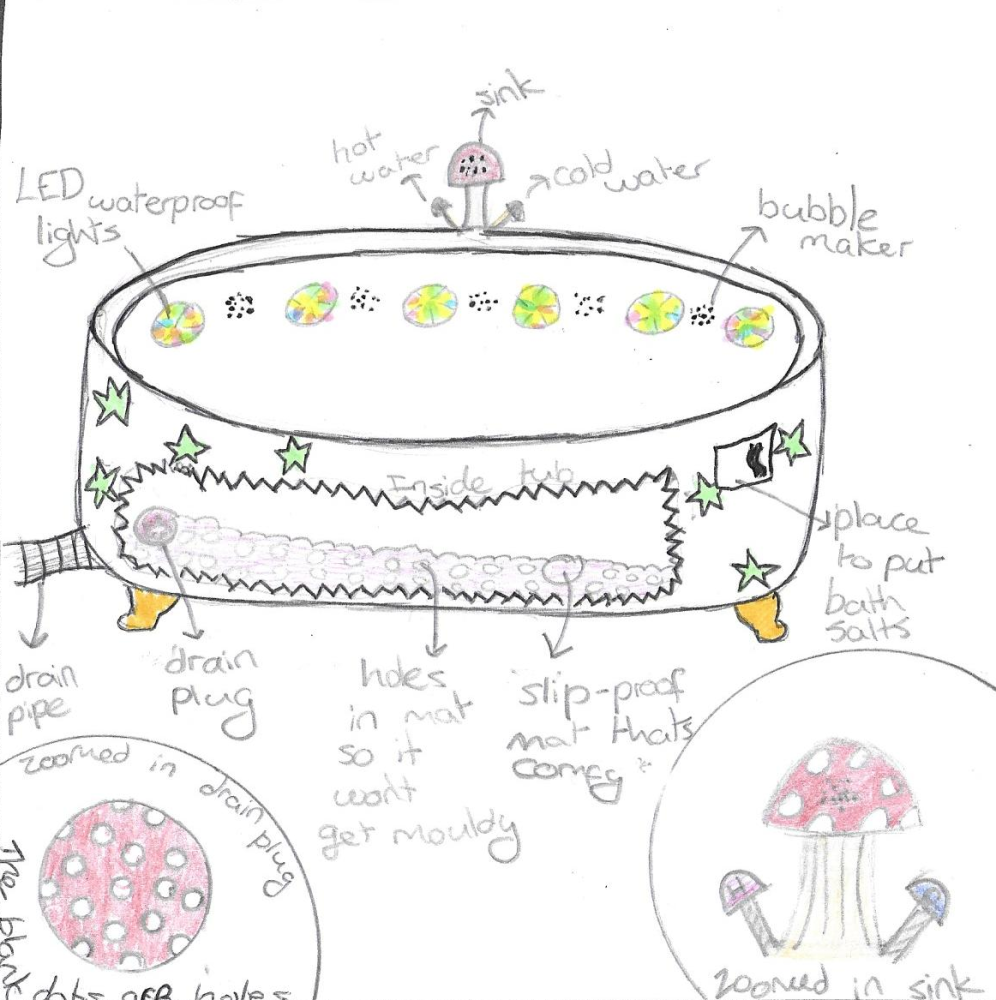 sink
hot
water
cold water
LED waterproof
lights
bubble
maker
Inside tub
place
to put
bath
salts
drain
pipe
drain
plug
holes
in mat
so it
won't
get mouldy
slip-proof
mat thats
comfy *
zoomed in drain plug
The blank
dots are holes
zoomed in sink